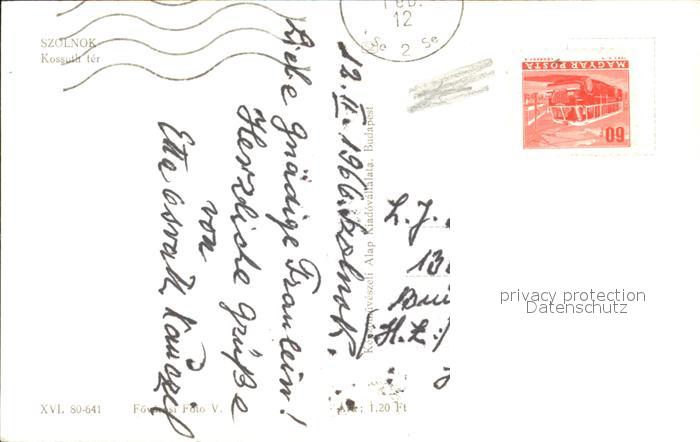 SZOLNOK
Kossuth tér
Feb.
12
Se 2 Se
MAGYAR POSTA
60
12. II. 1966. Szolnok.
Liebe Gnädige Fraulein!
Herzliche Grüße
von
Etta Osváth
Képzőművészeti Alap Kiadóvállalata, Budapest
L. J.
13
privacy protection
Datenschutz
XVI. 80-641
Fővárosi Fotó V.
Ára: 1.20 Ft